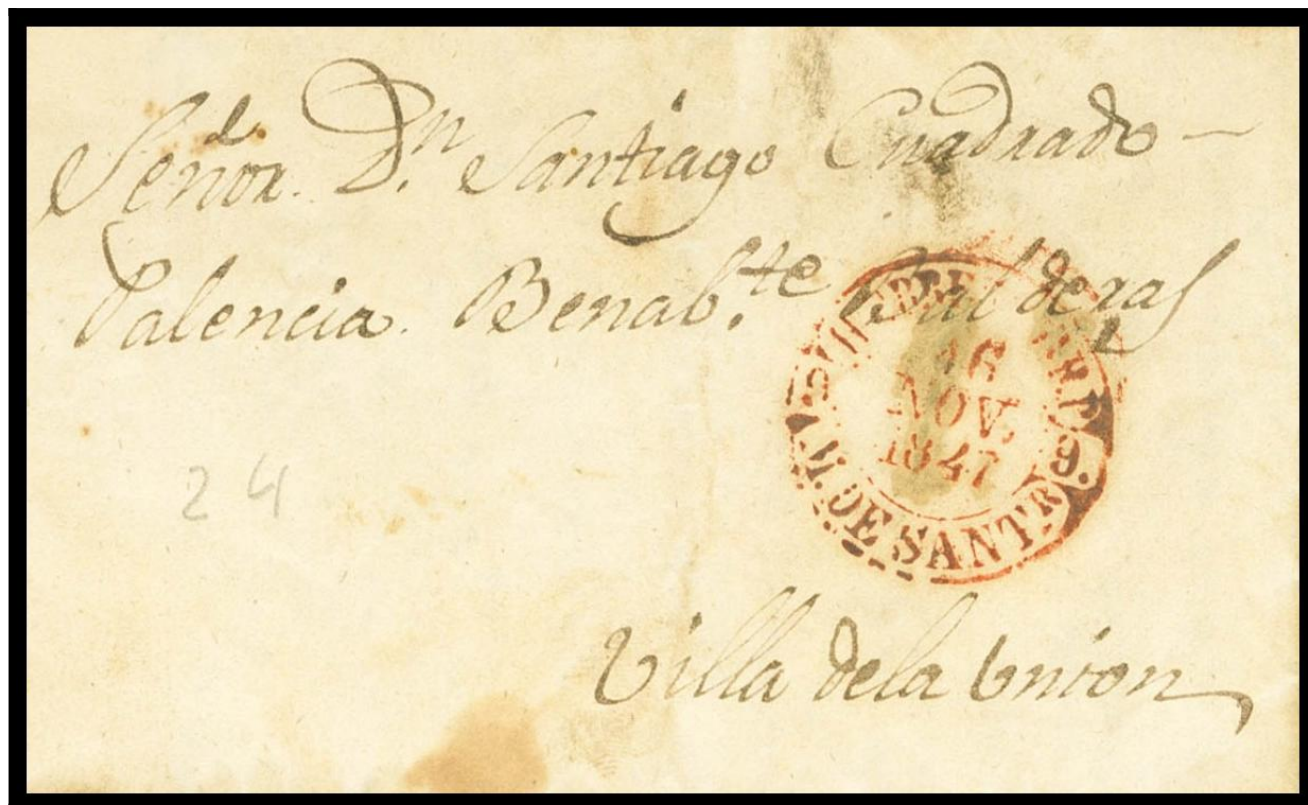 Señor. Dⁿ. Santiago Cuadrado -
Palencia. Benab.te Balderas
16
NOV.
1847
M. DE SANTR
24
Villa dela Union